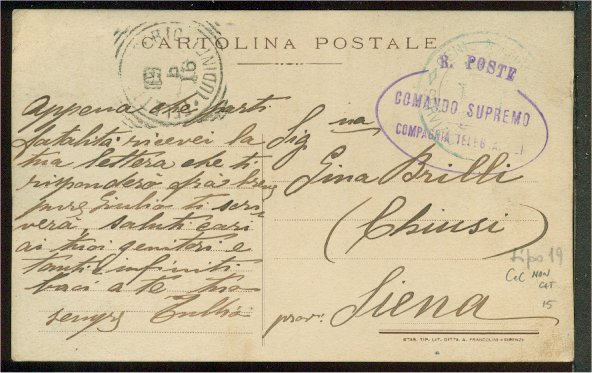 CARTOLINA POSTALE
R. POSTE
COMANDO SUPREMO
COMPAGNIA TELEG
UDINE
16
Appena che partì
Natalità ricevei la
tua lettera che ti
risponderò fra breve
pure Giulio ti scri-
verà, saluti cari
ai tuoi genitori e
tanti infiniti
baci a te tuo
sempre Tullio
Sig na
Gina Brilli
(Chiusi)
prov. Siena
Tipo 19
Cel NON
CAT
15
STAB. TIP. LIT. DITTA A. FRANCOLINI - FIRENZE